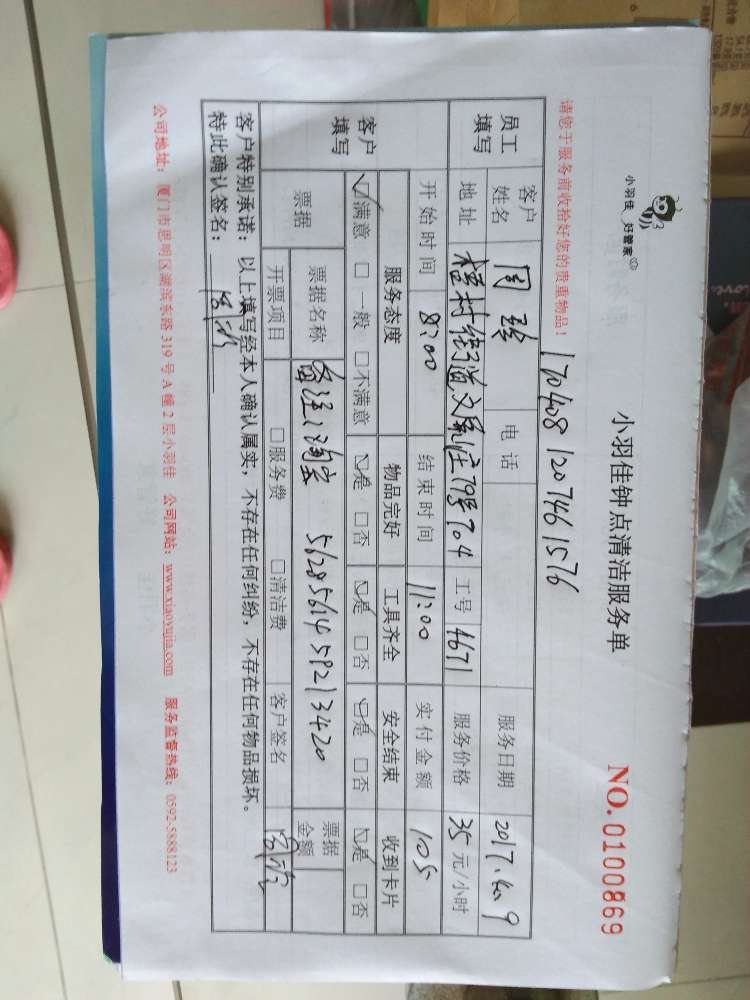 小羽佳 好管家
小羽佳钟点清洁服务单
NO.0100869
请您于服务前收拾好您的贵重物品！
170408 1207461576
员工填写 客户姓名 电话 服务日期 2017.4.09
地址 梧村街道文屏庄79号704 工号 A671 服务价格 35 元/小时
开始时间 8:00 结束时间 11:00 实付金额 105
客户填写 服务态度 物品完好 工具齐全 安全结束 收到卡片
☑满意 □一般 □不满意 ☑是 □否 ☑是 □否 ☑是 □否 ☑是 □否
票据 票据名称 备注：淘宝 5128561459213420 票据金额
开票项目 □服务费 □清洁费 客户签名
客户特别承诺：以上填写经本人确认属实，不存在任何纠纷，不存在任何物品损坏。
特此确认签名：
公司地址：厦门市思明区湖滨东路 319 号 A 幢 2 层小羽佳 公司网站：www.xiaoyujia.com 服务监督热线：0592-5888123